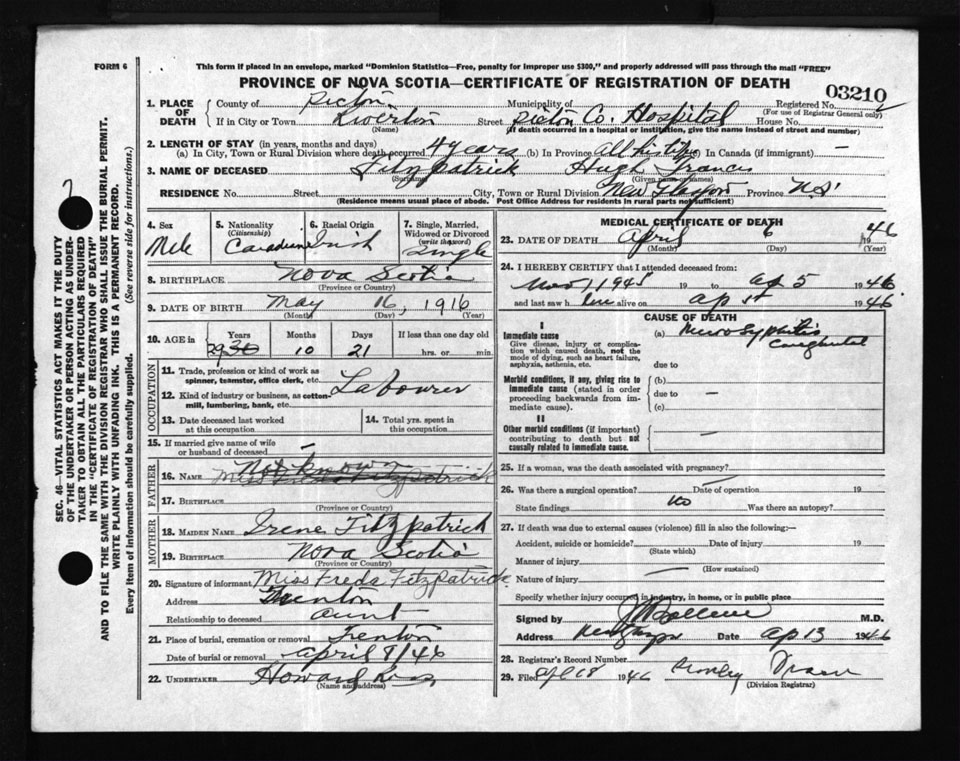 FORM 6
This form if placed in an envelope, marked "Dominion Statistics—Free, penalty for improper use $300," and properly addressed will pass through the mail "FREE"
PROVINCE OF NOVA SCOTIA—CERTIFICATE OF REGISTRATION OF DEATH
03210
1. PLACE OF DEATH
County of Pictou
Municipality of
Registered No.
(For use of Registrar General only)
If in City or Town Riverton
(Name)
Street Pictou Co. Hospital
House No.
(If death occurred in a hospital or institution, give the name instead of street and number)
2. LENGTH OF STAY (in years, months and days)
(a) In City, Town or Rural Division where death occurred 4 years (b) In Province all his life (c) In Canada (if immigrant) —
3. NAME OF DECEASED Fitzpatrick Hugh Francis
(Surname) (Given names)
RESIDENCE No. Street City, Town or Rural Division New Glasgow Province N.S.
(Residence means usual place of abode. Post Office Address for residents in rural parts not sufficient)
4. Sex
Male
5. Nationality
(Citizenship)
Canadian
6. Racial Origin
Irish
7. Single, Married, Widowed or Divorced
(write the word)
Single
8. BIRTHPLACE Nova Scotia
(Province or Country)
9. DATE OF BIRTH May 16, 1916
(Month) (Day) (Year)
10. AGE in
Years Months Days If less than one day old
29 30 10 21 hrs. or min.
OCCUPATION
11. Trade, profession or kind of work as spinner, teamster, office clerk, etc. Labourer
12. Kind of industry or business, as cotton-mill, lumbering, bank, etc.
13. Date deceased last worked at this occupation
14. Total yrs. spent in this occupation
15. If married give name of wife or husband of deceased —
FATHER
16. NAME Not known
Miss Freda Fitzpatrick
17. BIRTHPLACE
(Province or Country)
MOTHER
18. MAIDEN NAME Irene Fitzpatrick
19. BIRTHPLACE Nova Scotia
(Province or Country)
20. Signature of informant Miss Freda Fitzpatrick
Address Trenton
Relationship to deceased aunt
21. Place of burial, cremation or removal Trenton
Date of burial or removal April 8/46
22. UNDERTAKER Howard
(Name and address)
MEDICAL CERTIFICATE OF DEATH
23. DATE OF DEATH April 6 1946
(Month) (Day) (Year)
24. I HEREBY CERTIFY that I attended deceased from:
Nov 1 1945 19 to ap 5 1946
and last saw h im alive on ap 1st 1946
CAUSE OF DEATH
I
Immediate cause
Give disease, injury or complication which caused death, not the mode of dying, such as heart failure, asphyxia, asthenia, etc.
(a) Neuro Syphilis
Congenital
due to
Morbid conditions, if any, giving rise to immediate cause (stated in order proceeding backwards from immediate cause).
(b)
due to —
(c)
II
Other morbid conditions (if important) contributing to death but not causally related to immediate cause.
—
25. If a woman, was the death associated with pregnancy?
26. Was there a surgical operation? Date of operation 19
State findings no Was there an autopsy?
27. If death was due to external causes (violence) fill in also the following:—
Accident, suicide or homicide? Date of injury 19
(State which)
Manner of injury
(How sustained)
Nature of injury —
Specify whether injury occurred in industry, in home, or in public place
Signed by M.D.
Address Date ap 13 1946
28. Registrar's Record Number
29. Filed Apl 18 1946
(Division Registrar)
SEC. 46—VITAL STATISTICS ACT MAKES IT THE DUTY
OF THE UNDERTAKER OR PERSON ACTING AS UNDER-
TAKER TO OBTAIN ALL THE PARTICULARS REQUIRED
IN THE "CERTIFICATE OF REGISTRATION OF DEATH"
AND TO FILE THE SAME WITH THE DIVISION REGISTRAR WHO SHALL ISSUE THE BURIAL PERMIT.
WRITE PLAINLY WITH UNFADING INK. THIS IS A PERMANENT RECORD.
Every item of information should be carefully supplied. (See reverse side for instructions.)